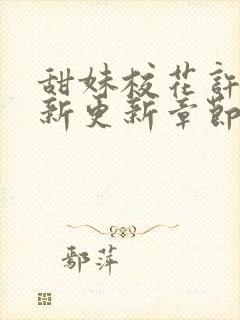 甜妹校花許
新更新章節
鄢萍